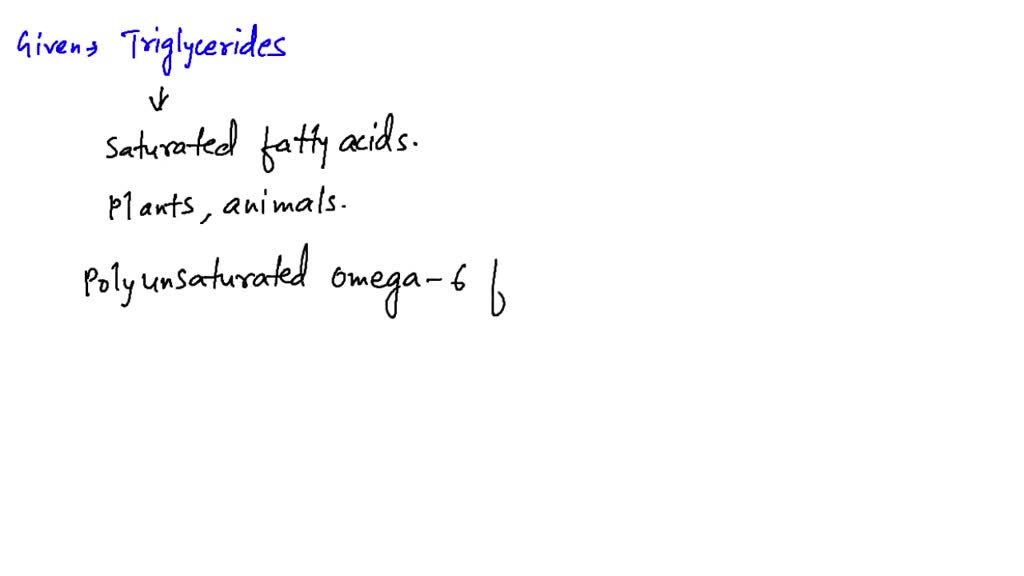 Given→ Triglycerides
↓
Saturated fatty acids.
Plants, animals.
Polyunsaturated omega-6 f